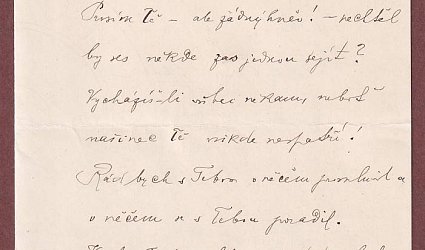 Prosím Tě – ale žádný hněv! – nechtěl
by ses někde zas jednou sejít?
Vycházíš-li vůbec někam, neboť
našinec Tě nikde nespatří!
Rád bych s Tebou o něčem promluvil a
o něčem se s Tebou poradil.